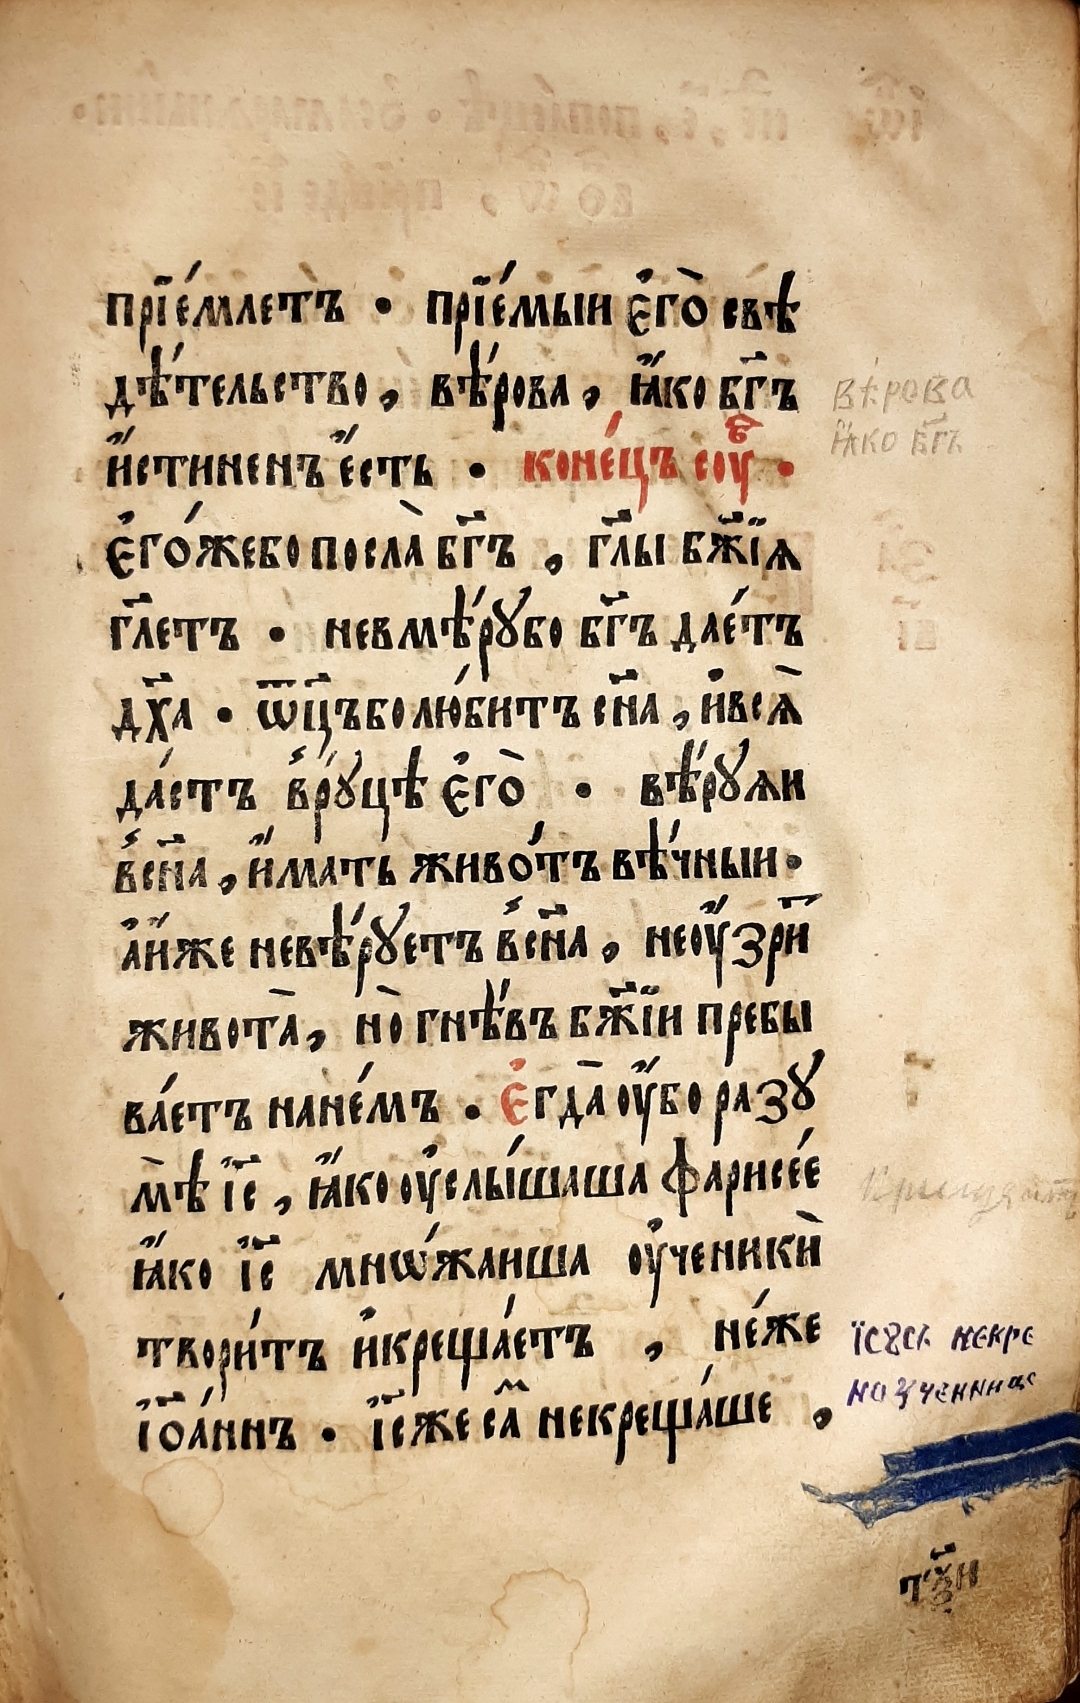 прїе́млетъ • прїе́мыи є҆го̀ свѣ
дѣ́тельство, вѣ́рова, ꙗ҆́ко бг҃ъ
и҆́стиненъ е҆́сть • коне́цъ соуⷠ҇ •
Є҆го́жебо посла̀ бг҃ъ, гл҃ы бж҃їѧ
гл҃етъ • невмѣ́рꙋбо бг҃ъ дае́тъ
дх҃а • ѿц҃ъбо лю́битъ сн҃а, и҆всѧ̀
да́стъ врꙋ́цѣ є҆го̀ • вѣ́рꙋѧи
всн҃а, и҆́мать живо́тъ вѣ́чныи •
а҆и҆́же невѣ́рꙋетъ всн҃а, неоу҆́зри
живота̀, но̀ гнѣ́въ бж҃їи пребы
ва́етъ нане́мъ • Є҆гда̀ оу҆́бо разꙋ
мѣ̀ і҆с҃, ꙗ҆́ко оу҆слы́шаша фарисе́е
ꙗ҆́ко і҆с҃ мнѡ́жаиша оу҆ченикѝ
твори́тъ и҆креща́етъ, не́же
і҆ѡа́ннъ • і҆с҃же саⷨ некреща́ше,
вѣрова
ꙗ҆ко бг҃ъ
їсꙋсъ некре
но ꙋченици